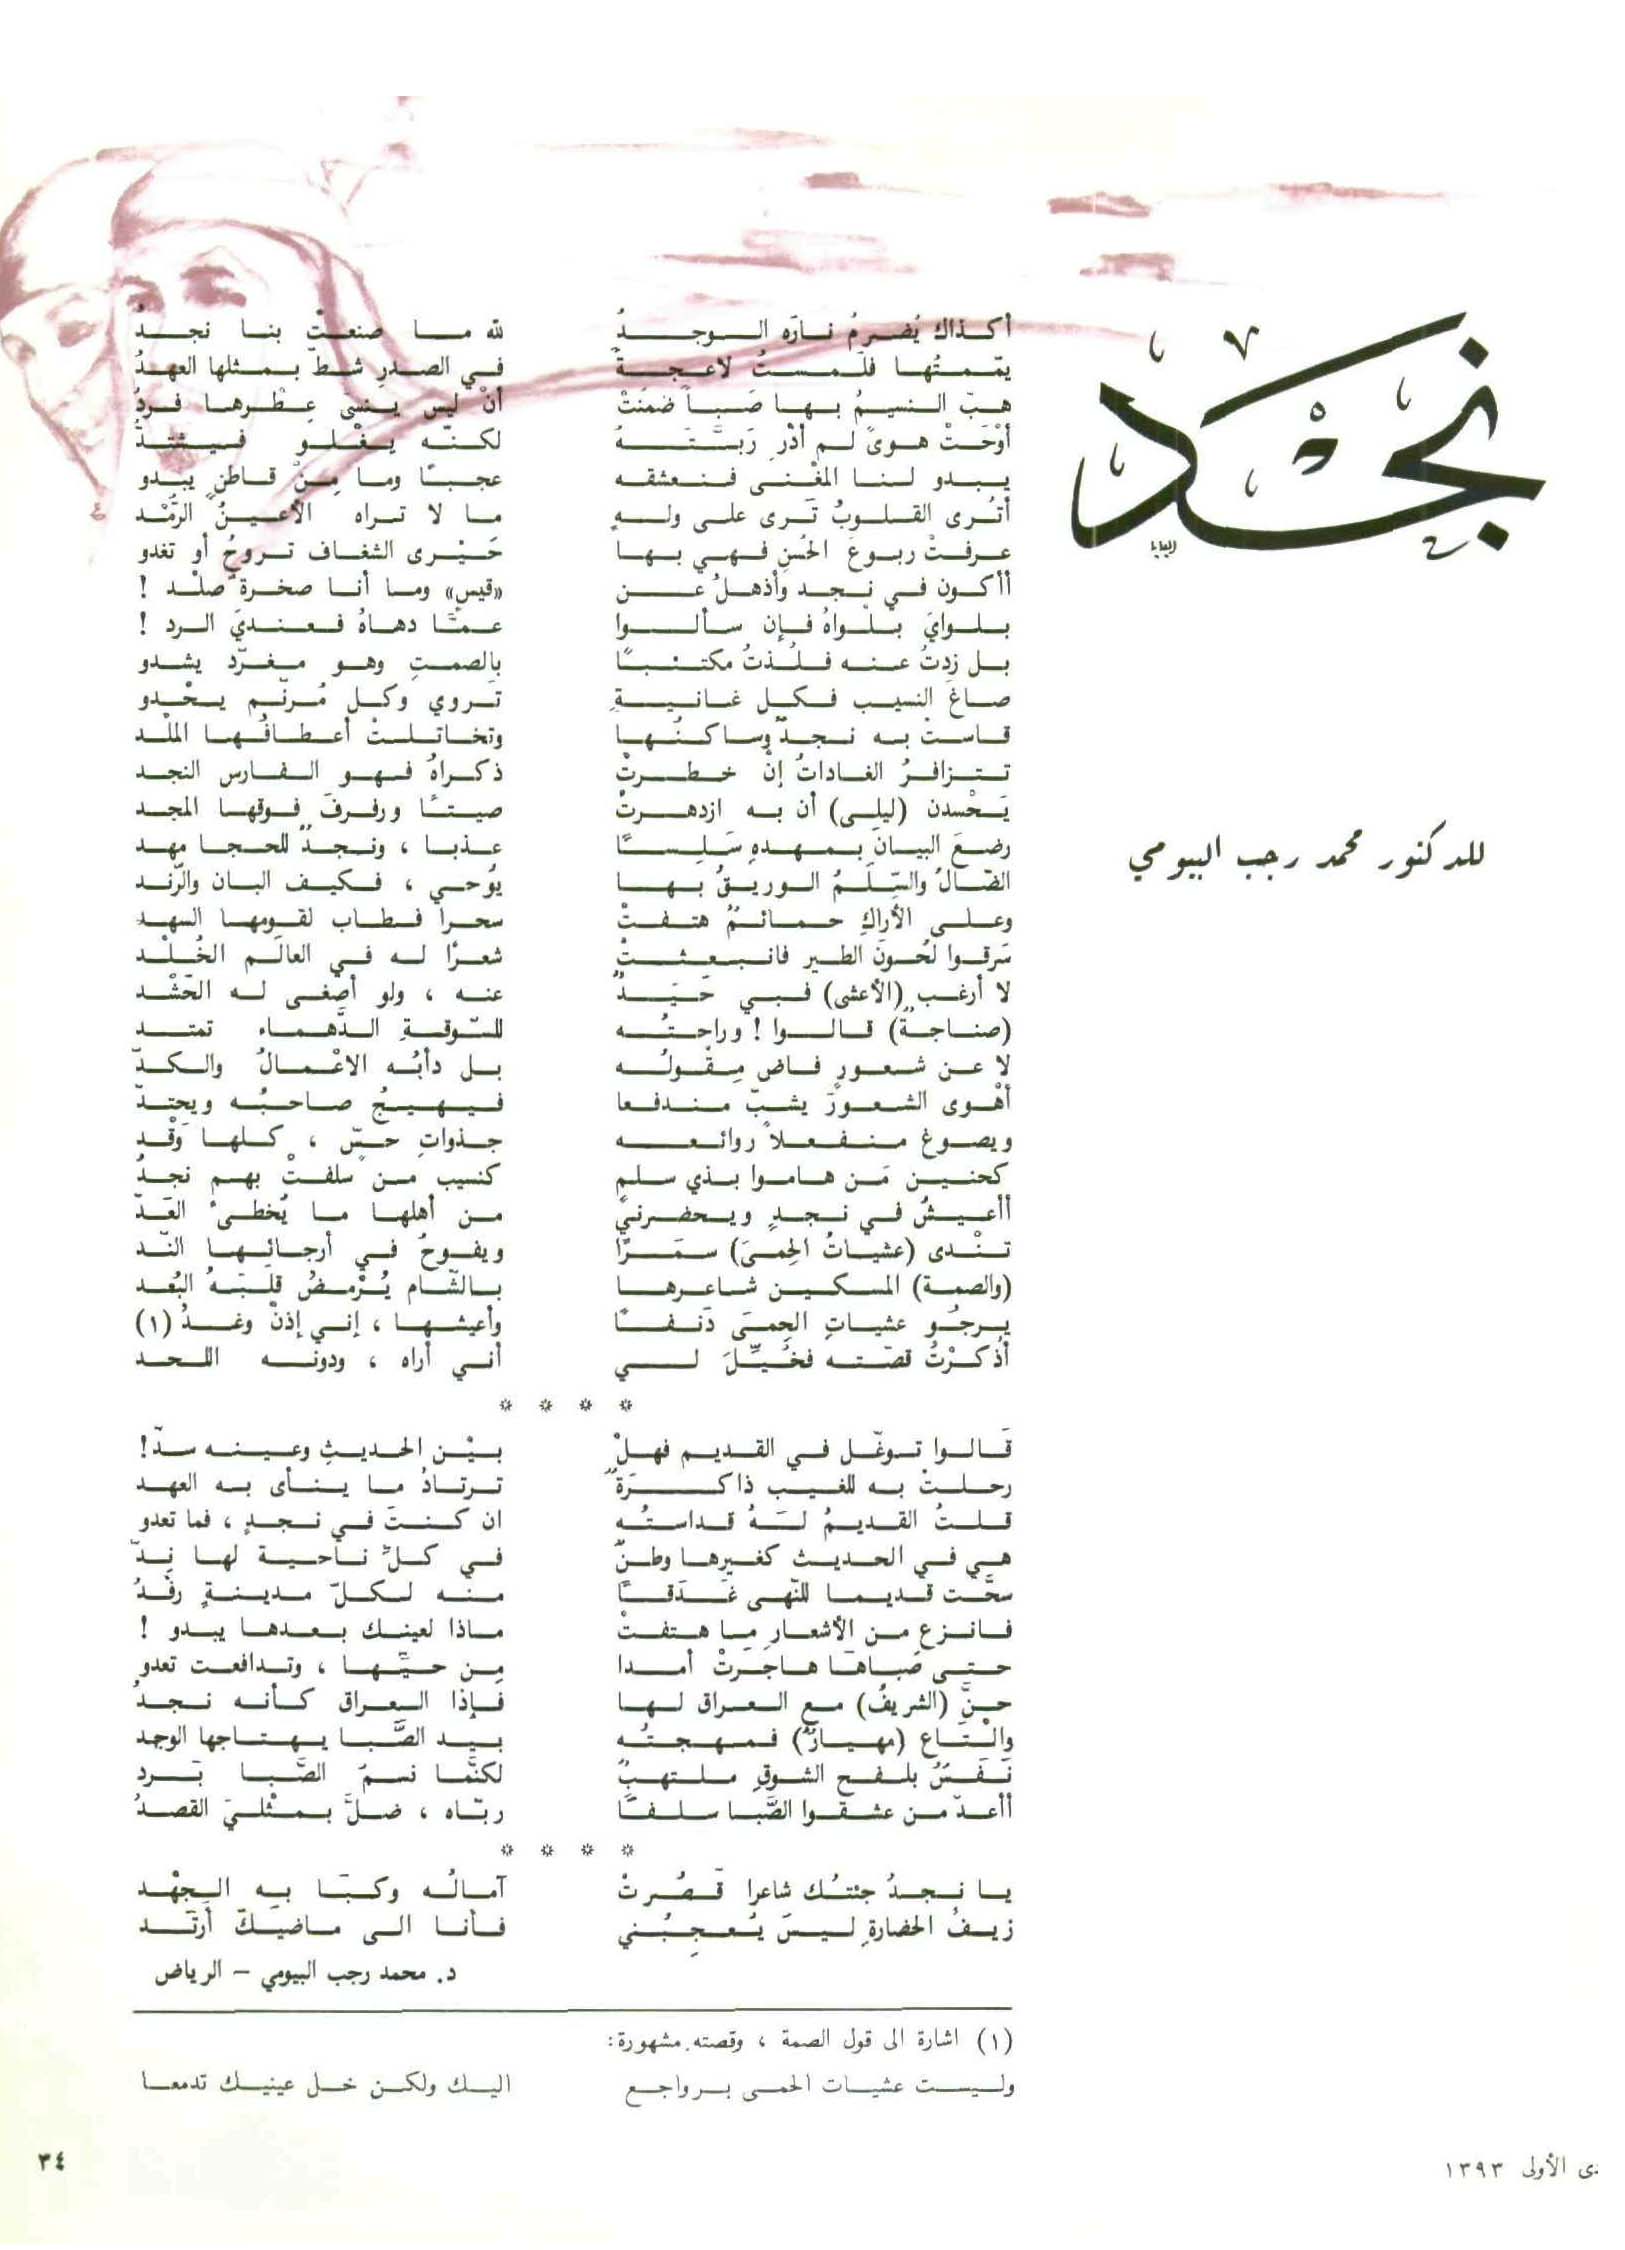 نجد
للدكتور محمد رجب البيومي
أكذاك يُضرمُ نارَه الوجدُ لله ما صنعتْ بنا نجدُ
يمّمتُها فلَمستُ لاعجةً في الصدرِ شطّ بمثلها العهدُ
هبّ النسيمُ بها صَباً ضمَنتْ أنْ ليس ينسى عِطْرها فردُ
أوْحَتْ هوىً لم أدْرِ رَبَّتَهُ لكنّه يغْلو فيشتدُّ
يبدو لنا المغْنى فنعشقه عجبًا وما مِنْ قاطنٍ يبدو
أتُرى القلوبُ تَرى على ولهٍ ما لا تراه الأعينُ الرُّمْد
عرفتْ ربوعَ الحُسنِ فهي بها حَيْرى الشغاف تروحُ أو تغدو
أأكون في نجد وأذهلُ عن «قيسٍ» وما أنا صخرة صلْد !
بلوايَ بلْواهُ فإن سألوا عمَّا دهاهُ فعنديَ الرد !
بل زدتُ عنه فلُذتُ مكتئبًا بالصمتِ وهو مغرّد يشدو
صاغَ النسيب فكل غانيةٍ تَروي وكل مُرنّم يحْدو
قاستْ به نجدٌ وساكنُها وتخاتلتْ أعطافُها الملْد
تتزافرُ الغاداتُ إنْ خطرتْ ذكراهُ فهو الفارس النجد
يَحْسدن (ليلى) أن به ازدهرتْ صيتًا ورفرفَ فوقها المجد
رضعَ البيانَ بمهدهِ سَلِسًا عذبا ، ونجدٌ للحجا مهد
الضّالُ والسِّلَمُ الوريقُ بها يُوحي ، فكيف البان والرّند
وعلى الأراكِ حمائمٌ هتفتْ سحرا فطاب لقومها السهد
سَرقوا لحُونَ الطير فانبعثتْ شعرًا له في العالَم الخُلْد
لا أرغب (الأعشى) فبي حَيَدٌ عنه ، ولو أصغى له الحَشْد
(صناجةٌ) قالوا ! وراحتُه للسّوقةِ الدَّهماء تمتد
لا عن شعورٍ فاض مِقْولُه بل دأبُه الاعْمالُ والكدّ
أهْوى الشعورَ يشبّ مندفعا فيهيجُ صاحبُه ويحتدّ
ويصوغ منفعلاً روائعه جذواتِ حسّ ، كلها وَقْد
كحنين مَن هاموا بذي سلمٍ كنسيب من سلفتْ بهم نجدُ
أأعيشُ في نجدٍ ويحضرني من أهلها ما يُخطىء العَدّ
تنْدى (عشياتُ الحِمىَ) سمَرًا ويفوحُ في أرجائها النّد
(والصمة) المسكين شاعرها بالشّام يُرْمضُ قلبَهُ البُعد
يرجُو عشياتِ الحِمىَ دَنفًا وأعيشها ، إني إذنْ وغدُ (١)
أذْكرْتُ قصّته فخُيِّلَ لي أني أراه ، ودونه اللحد
* * * *
قَالوا توغّل في القديم فهلْ بيْن الحديثِ وعينه سدّ!
رحلتْ به للغيب ذاكرَةٌ ترتادُ ما ينأى به العهد
قلتُ القديمُ لَهُ قداستُه ان كنتَ في نجدٍ ، فما تعدو
هي في الحديث كغيرها وطنٌ في كلّ ناحية لها نِدّ
سحَّت قديما للنّهى غَدَقًا منه لكلّ مدينةٍ رفْدُ
فانزع من الأشعارِ ما هتفتْ ماذا لعينك بعدها يبدو !
حتى صَباها هاجَرَتْ أمدا مِن حيِّها ، وتدافعت تعدو
حنَّ (الشريفُ) مع العراق لها فإذا العراق كأنه نجدُ
والْتَاع (مهيارٌ) فمهجتُه بيد الصَّبا يهتاجها الوجد
نَفَسٌ بلفح الشوقِ ملتهبٌ لكنَّما نسمَ الصَّبا بَرد
أأعدّ من عشقوا الصَّبا سلفًا ربّاه ، ضلَّ بمثْليَ القصدُ
* * * *
يا نجدُ جئتُك شاعرا قَصُرتْ آمالُه وكبَا به الجهْد
زيفُ الحضارةِ ليسَ يُعجِبُني فأنا الى ماضيكِ أرتَد
د. محمد رجب البيومي – الرياض
(١) اشارة الى قول الصمة ، وقصته مشهورة:
وليست عشيات الحمى برواجع اليك ولكن خل عينيك تدمعا
٣٤
دى الأولى ١٣٩٣